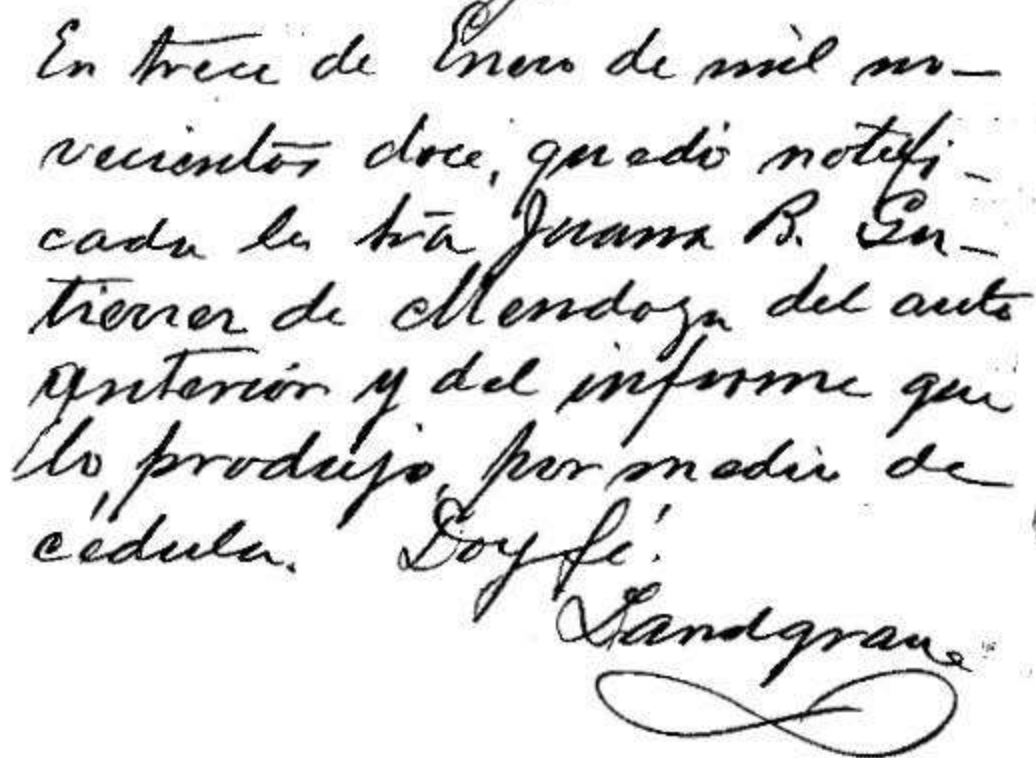 En trece de Enero de mil no-
vecientos doce, quedó notifi-
cada la Srā Juana B. Gu-
tierrez de Mendoza del auto
anterior y del informe que
lo produjo, por medio de
cédula. Doy fé.